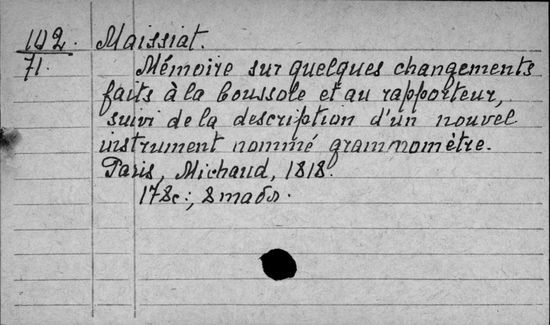 102. Maissiat.
71. Mémoire sur quelques changements
faits à la boussole et au rapporteur,
suivi de la description d'un nouvel
instrument nommé grammomètre.
Paris, Michaud, 1818.
178с., 8 табл.